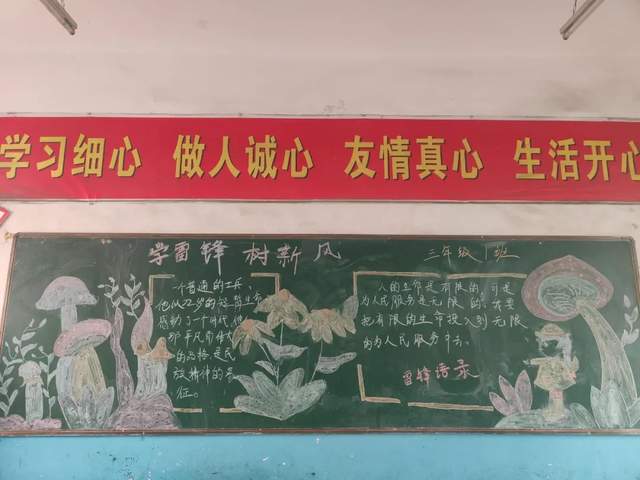 学习细心 做人诚心 友情真心 生活开心
学雷锋 树新风
三年级 1班
一个普通的士兵
他以22岁的短暂生命
感动了一个时代，他
那平凡而伟大
的品格，是民
族精神的象
征。
人的生命是有限的，可是
为人民服务是无限的，我要
把有限的生命投入到无限
的为人民服务中去。
雷锋语录